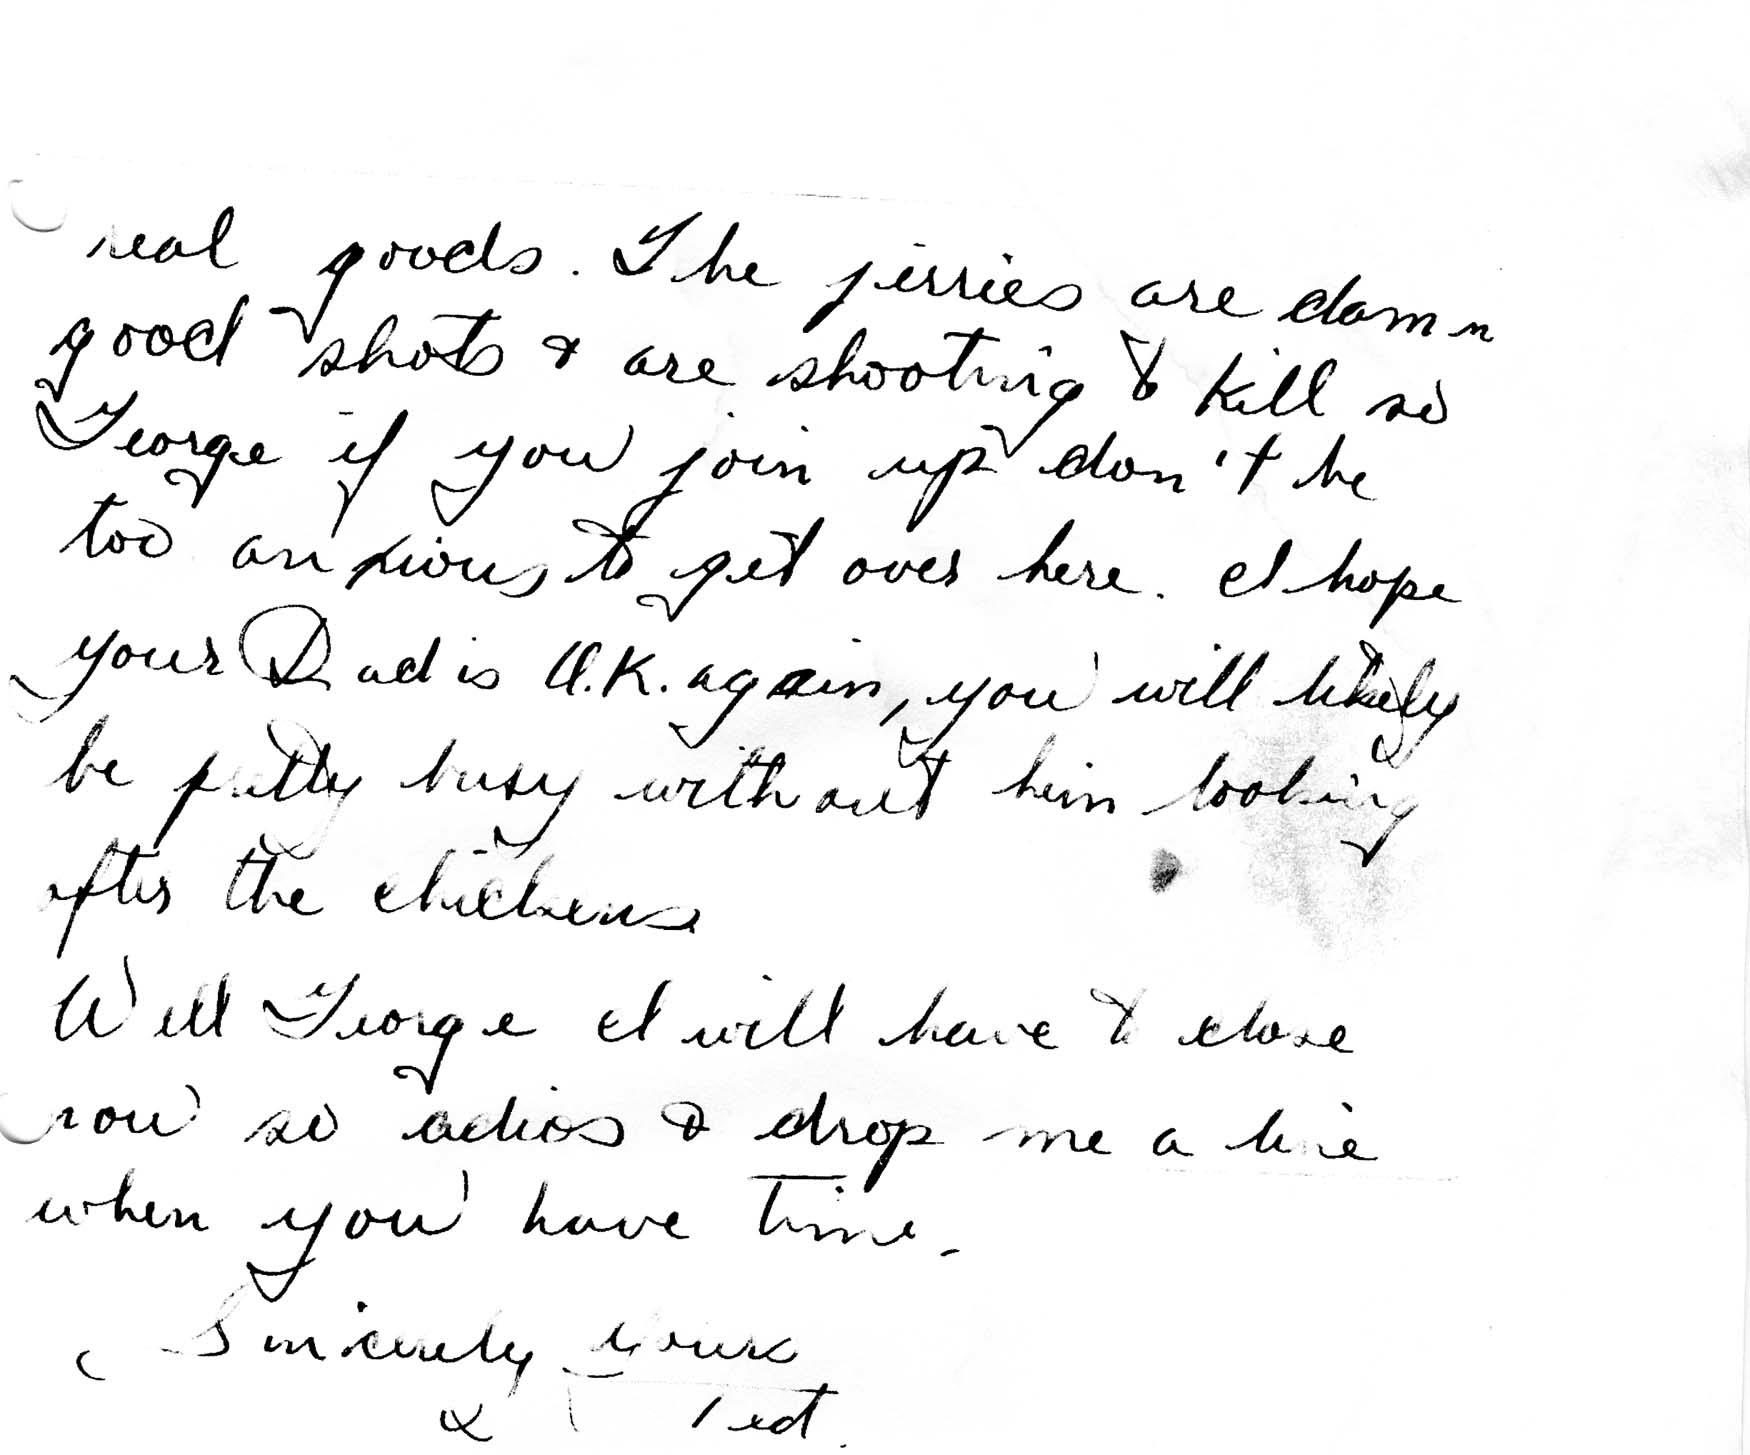 real goods. The jerries are damn
good shots & are shooting to kill so
George if you join up don't be
too anxious to get over here. I hope
your Dad is O.K. again, you will likely
be pretty busy without him looking
after the chickens
Well George I will have to close
now so adios & drop me a line
when you have time.
Sincerely yours
Ted.